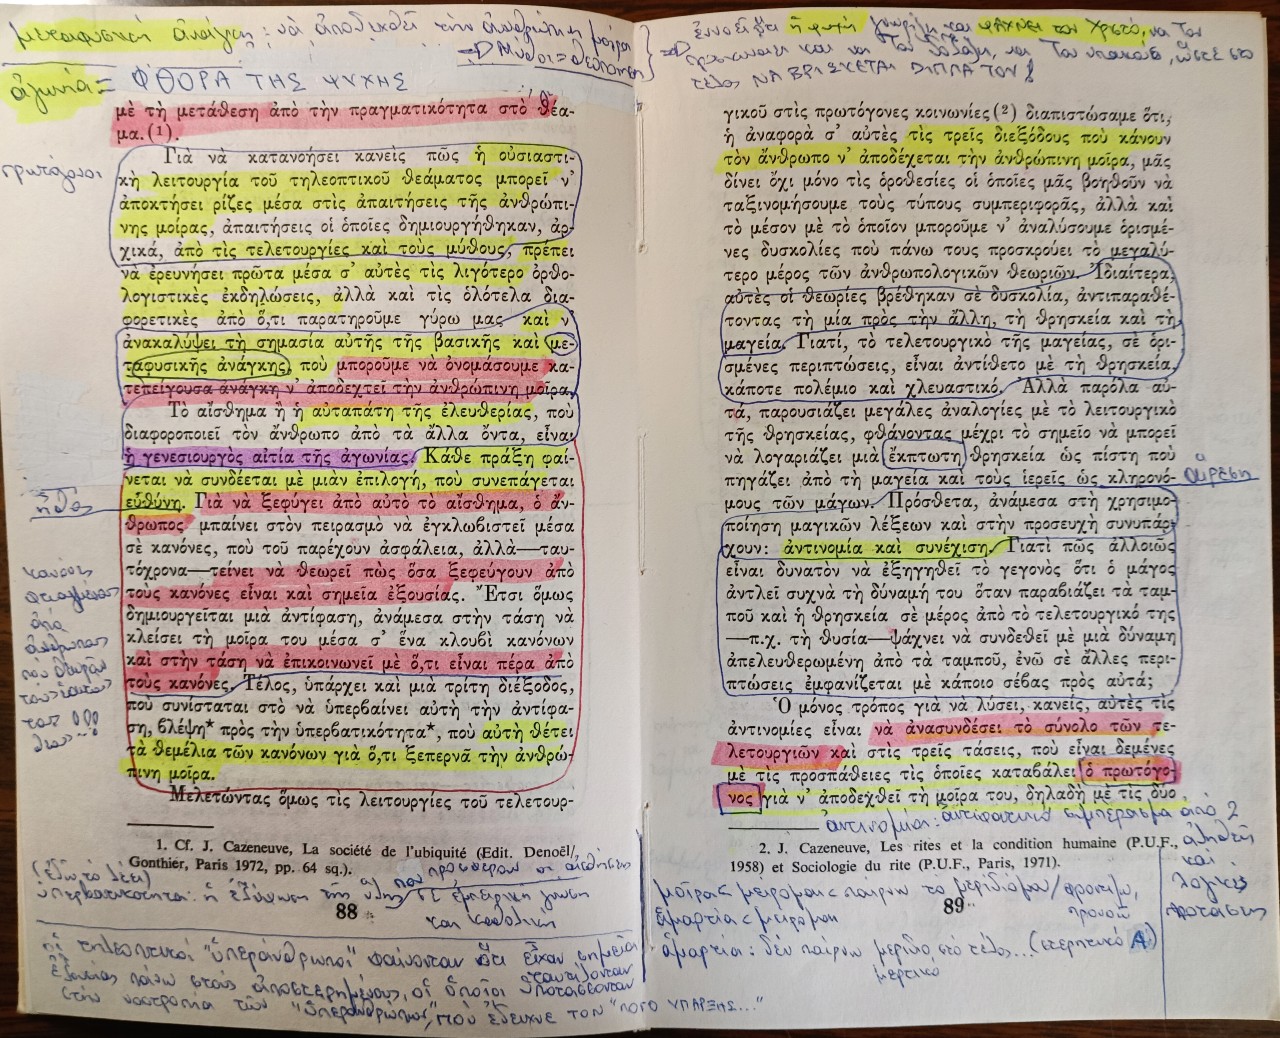 μεταφυσική ἀνάγκη: νὰ ἀποδεχθεῖ τὴν ἀνθρώπινη μοῖρα
ἀγωνία = ΦΘΟΡΑ ΤΗΣ ΨΥΧΗΣ
μὲ τὴ μετάθεση ἀπὸ τὴν πραγματικότητα στὸ θέα-
μα.(1).
πρωτόγονοι
Γιὰ νὰ κατανοήσει κανεὶς πῶς ἡ οὐσιαστι-
κὴ λειτουργία τοῦ τηλεοπτικοῦ θεάματος μπορεῖ ν'
ἀποκτήσει ρίζες μέσα στὶς ἀπαιτήσεις τῆς ἀνθρώπι-
νης μοίρας, ἀπαιτήσεις οἱ ὁποῖες δημιουργήθηκαν, ἀρ-
χικά, ἀπὸ τὶς τελετουργίες καὶ τοὺς μύθους, πρέπει
νὰ ἐρευνήσει πρῶτα μέσα σ' αὐτὲς τὶς λιγότερο ὀρθο-
λογιστικὲς ἐκδηλώσεις, ἀλλὰ καὶ τὶς ὁλότελα δια-
φορετικὲς ἀπὸ ὅ,τι παρατηροῦμε γύρω μας καὶ ν'
ἀνακαλύψει τὴ σημασία αὐτῆς τῆς βασικῆς καὶ με-
ταφυσικῆς ἀνάγκης, ποὺ μποροῦμε νὰ ὀνομάσουμε κα-
τεπείγουσα ἀνάγκη ν' ἀποδεχτεῖ τὴν ἀνθρώπινη μοῖρα.
Τὸ αἴσθημα ἢ ἡ αὐταπάτη τῆς ἐλευθερίας, ποὺ
διαφοροποιεῖ τὸν ἄνθρωπο ἀπὸ τὰ ἄλλα ὄντα, εἶναι
ἡ γενεσιουργὸς αἰτία τῆς ἀγωνίας. Κάθε πράξη φαί-
νεται νὰ συνδέεται μὲ μιὰν ἐπιλογή, ποὺ συνεπάγεται
εὐθύνη. Γιὰ νὰ ξεφύγει ἀπὸ αὐτὸ τὸ αἴσθημα, ὁ ἄν-
θρωπος μπαίνει στὸν πειρασμὸ νὰ ἐγκλωβιστεῖ μέσα
σὲ κανόνες, ποὺ τοῦ παρέχουν ἀσφάλεια, ἀλλὰ—ταυ-
τόχρονα—τείνει νὰ θεωρεῖ πὼς ὅσα ξεφεύγουν ἀπὸ
τοὺς κανόνες εἶναι καὶ σημεῖα ἐξουσίας. Ἔτσι ὅμως
δημιουργεῖται μιὰ ἀντίφαση, ἀνάμεσα στὴν τάση νὰ
κλείσει τὴ μοῖρα του μέσα σ' ἕνα κλουβὶ κανόνων
καὶ στὴν τάση νὰ ἐπικοινωνεῖ μὲ ὅ,τι εἶναι πέρα ἀπὸ
τοὺς κανόνες. Τέλος, ὑπάρχει καὶ μιὰ τρίτη διέξοδος,
ποὺ συνίσταται στὸ νὰ ὑπερβαίνει αὐτὴ τὴν ἀντίφα-
ση, βλέψη* πρὸς τὴν ὑπερβατικότητα*, ποὺ αὐτὴ θέτει
τὰ θεμέλια τῶν κανόνων γιὰ ὅ,τι ξεπερνᾶ τὴν ἀνθρώ-
πινη μοῖρα.
Μελετώντας ὅμως τὶς λειτουργίες τοῦ τελετουρ-
1. Cf. J. Cazeneuve, La société de l'ubiquité (Edit. Denoël/
Gonthier, Paris 1972, pp. 64 sq.).
88
οἱ τηλεοπτικοί "ὑπεράνθρωποι" φαίνονταν ὅτι εἶχαν σημεῖα
γικοῦ στὶς πρωτόγονες κοινωνίες(2) διαπιστώσαμε ὅτι,
ἡ ἀναφορὰ σ' αὐτὲς τὶς τρεῖς διεξόδους ποὺ κάνουν
τὸν ἄνθρωπο ν' ἀποδέχεται τὴν ἀνθρώπινη μοῖρα, μᾶς
δίνει ὄχι μόνο τὶς ὁροθεσίες οἱ ὁποῖες μᾶς βοηθοῦν νὰ
ταξινομήσουμε τοὺς τύπους συμπεριφορᾶς, ἀλλὰ καὶ
τὸ μέσον μὲ τὸ ὁποῖον μποροῦμε ν' ἀναλύσουμε ὁρισμέ-
νες δυσκολίες ποὺ πάνω τους προσκρούει τὸ μεγαλύ-
τερο μέρος τῶν ἀνθρωπολογικῶν θεωριῶν. Ἰδιαίτερα,
αὐτὲς οἱ θεωρίες βρέθηκαν σὲ δυσκολία, ἀντιπαραθέ-
τοντας τὴ μία πρὸς τὴν ἄλλη, τὴ θρησκεία καὶ τὴ
μαγεία. Γιατί, τὸ τελετουργικὸ τῆς μαγείας, σὲ ὁρι-
σμένες περιπτώσεις, εἶναι ἀντίθετο μὲ τὴ θρησκεία,
κάποτε πολέμιο καὶ χλευαστικό. Ἀλλὰ παρόλα αὐ-
τά, παρουσιάζει μεγάλες ἀναλογίες μὲ τὸ λειτουργικὸ
τῆς θρησκείας, φθάνοντας μέχρι τὸ σημεῖο νὰ μπορεῖ
νὰ λογαριάζει μιὰ ἔκπτωτη θρησκεία ὡς πίστη ποὺ
πηγάζει ἀπὸ τὴ μαγεία καὶ τοὺς ἱερεῖς ὡς κληρονό-
μους τῶν μάγων. Πρόσθετα, ἀνάμεσα στὴ χρησιμο-
ποίηση μαγικῶν λέξεων καὶ στὴν προσευχὴ συνυπάρ-
χουν: ἀντινομία καὶ συνέχιση. Γιατὶ πῶς ἀλλοιῶς
εἶναι δυνατὸν νὰ ἐξηγηθεῖ τὸ γεγονὸς ὅτι ὁ μάγος
ἀντλεῖ συχνὰ τὴ δύναμή του ὅταν παραβιάζει τὰ ταμ-
ποῦ καὶ ἡ θρησκεία σὲ μέρος ἀπὸ τὸ τελετουργικό της
—π.χ. τὴ θυσία—ψάχνει νὰ συνδεθεῖ μὲ μιὰ δύναμη
ἀπελευθερωμένη ἀπὸ τὰ ταμποῦ, ἐνῶ σὲ ἄλλες περι-
πτώσεις ἐμφανίζεται μὲ κάποιο σέβας πρὸς αὐτά;
Ὁ μόνος τρόπος γιὰ νὰ λύσει, κανείς, αὐτὲς τὶς
ἀντινομίες εἶναι νὰ ἀνασυνδέσει τὸ σύνολο τῶν τε-
λετουργιῶν καὶ στὶς τρεῖς τάσεις, ποὺ εἶναι δεμένες
μὲ τὶς προσπάθειες τὶς ὁποῖες καταβάλει ὁ πρωτόγο-
νος γιὰ ν' ἀποδεχθεῖ τὴ μοῖρα του, δηλαδὴ μὲ τὶς δύο
ἀντινομία: ἀντιφατικό συμπέρασμα ἀπό 2
ἀληθεῖς
καὶ
λογικές
προτάσεις
2. J. Cazeneuve, Les rites et la condition humaine (P.U.F.,
1958) et Sociologie du rite (P.U.F., Paris, 1971).
89